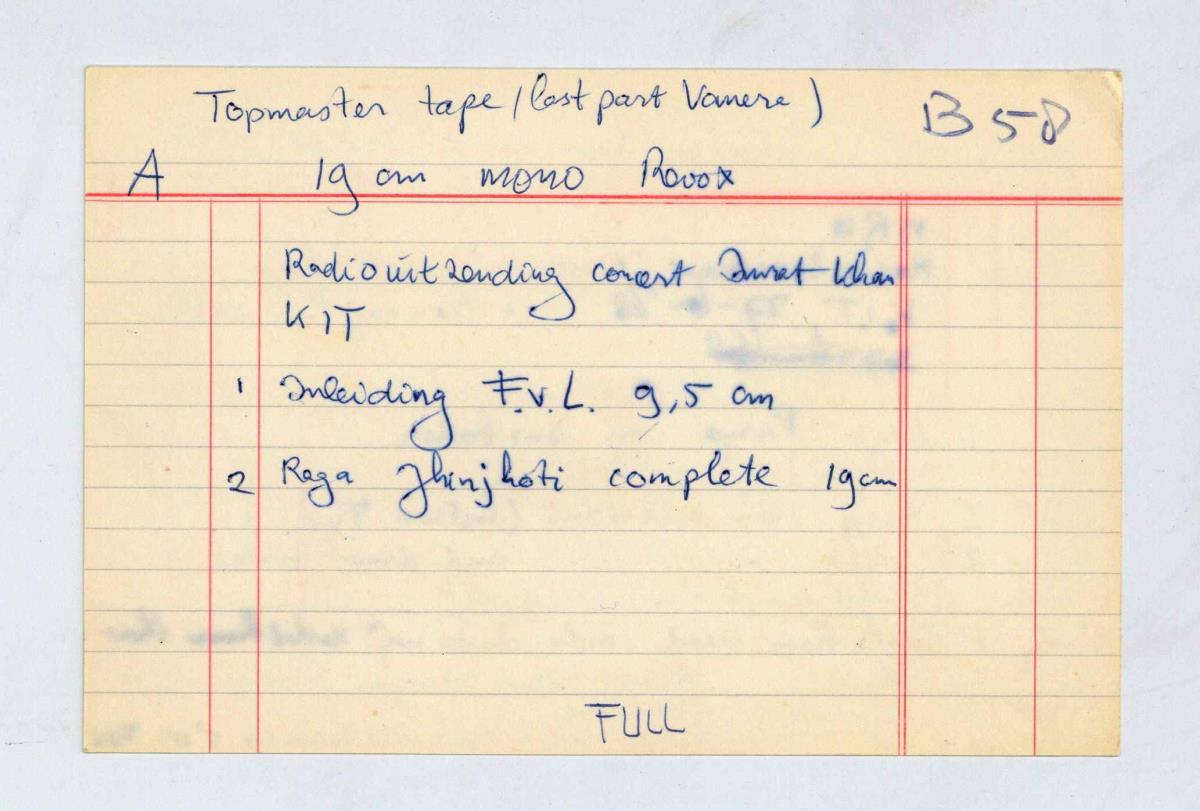 Topmaster tape (last part Vamera)
B 58
A 19 cm mono Revox
Radiouitzending concert Imrat Khan
KIT
1 Inleiding F.v.L. 9,5 cm
2 Raga Jhinjhoti complete 19 cm
FULL